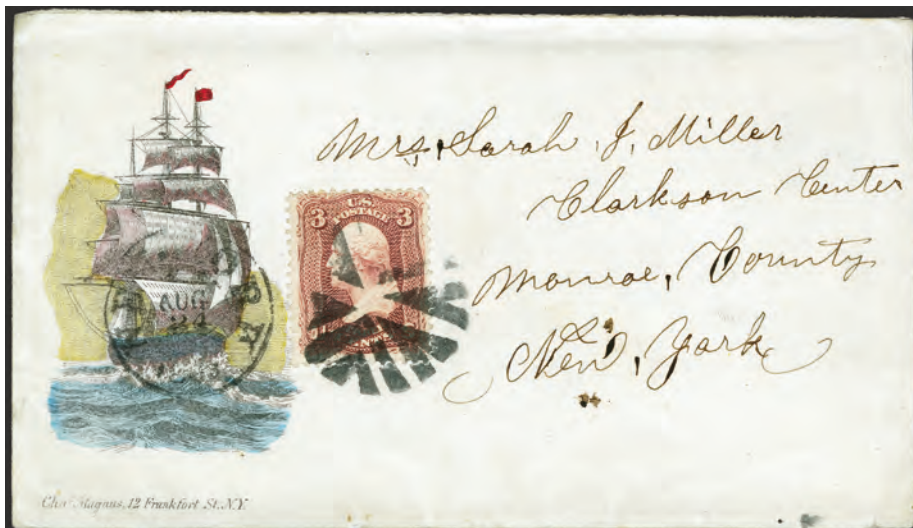 Mrs, Sarah J, Miller
Clarkson Center
Monroe, County
New, York
3 U.S. POSTAGE 3
AUG
24
Chas Magnus, 12 Frankfort St. N.Y.